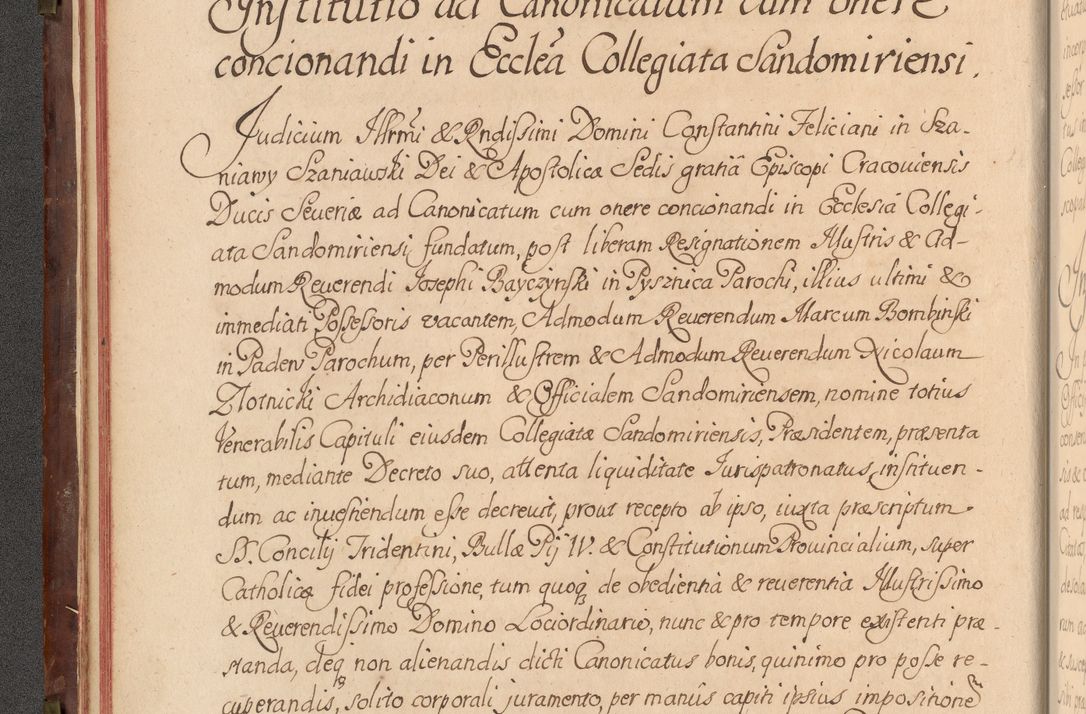 Institutio ad Canonicatum cum onere
concionandi in Ecclẽa Collegiata Sandomiriensi.
Judicium Illrmi & Rndissimi Domini Constantini Feliciani in Sza-
niawy Szaniawski Dei & Apostolicæ Sedis gratiã Episcopi Cracouiensis
Ducis Seueriæ ad Canonicatum cum onere concionandi in Ecclesia Collegi-
ata Sandomiriensi fundatum, post liberam Resignationem Illustris & Ad-
modum Reuerendi Josephi Bayczynski in Pysznica Parochi, illius ultimi &
inmediati Possessoris vacantem, Admodum Reuerendum Marcum Bombinski
in Padew Parochum, per Perillustrem & Admodum Reuerendum Nicolaum
Złotnicki Archidiaconum & Officialem Sandomiriensem, nomine totius
Venerabilis Capituli eiusdem Collegiatæ Sandomiriensis, Præsidentem, præsenta
tum, mediante Decreto suo, attenta liquiditate Jurispatronatus, instituen-
dum ac inuestiendum esse decreuit, prout recepto ab ipso, iuxta præscriptum
SS. Concilij Tridentini, Bullæ Pij IV. & Constitutionum Prouincialium, super
Catholicæ fidei professione, tum quoq; de obedientia & reuerentia Illustrissimo
& Reuerendissimo Domino Lociordinario, nunc & pro tempore existenti præ-
standa, deq; non alienandis dicti Canonicatus bonis, quinimo pro posse re-
cuperandis, solito corporali juramento, per manus capiti ipsius impositionẽ